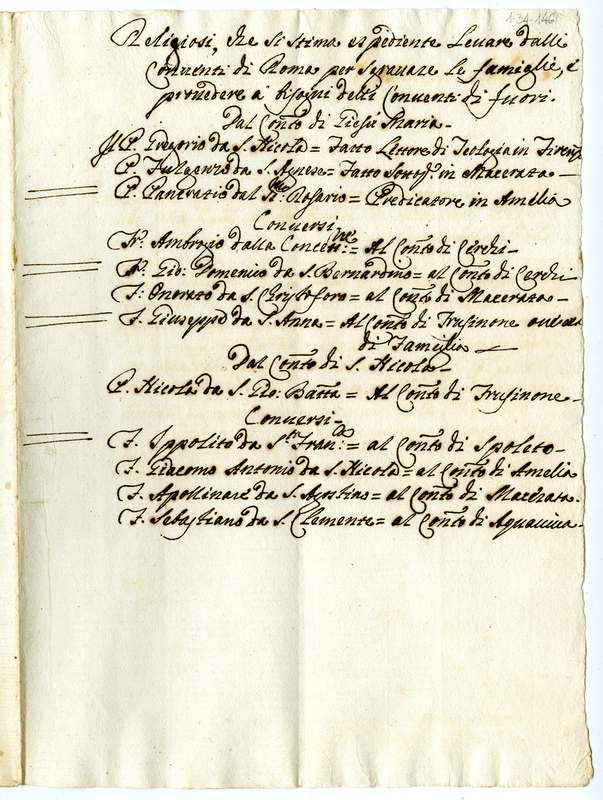 1-34-146
Religiosi, che si stima espediente Levare dalli
Conventi di Roma per sgravare le famiglie, e
provedere a' bisogni delli Conventi di fuori.
Dal Conto di Giesù Maria-
Il P. Gregorio da S. Nicola= Fatto Lettore di Teologia in Firenze
P. Fulgenzo da S. Agnese= Fatto in Macerata-
P. Pancratio dal SSmo: Rosario= Predicatore in Amelia
Conversi
Fr. Ambrogio dalla Concettne:= Al Conto di Cerchi-
Fr. Gio: Domenico da S. Bernardino= al Conto di Cerchi
F: Onorato da S. Christoforo= al Conto di Macerata-
F. Giuseppe da S. Anna= Al Conto di Frusinone
di Famiglia
Dal Conto di S. Nicola-
P. Nicola da S. Gio: Batta= Al Conto di Frusinone-
Conversi-
F. Ippolito da S. Franco:= al Conto di Spoleto-
F. Giacomo Antonio da S. Nicola= al Conto di Amelia
F. Apollinare da S. Agostino= al Conto di Macerata.
F. Sebastiano da S. Clemente= al Conto di Aquaviva-